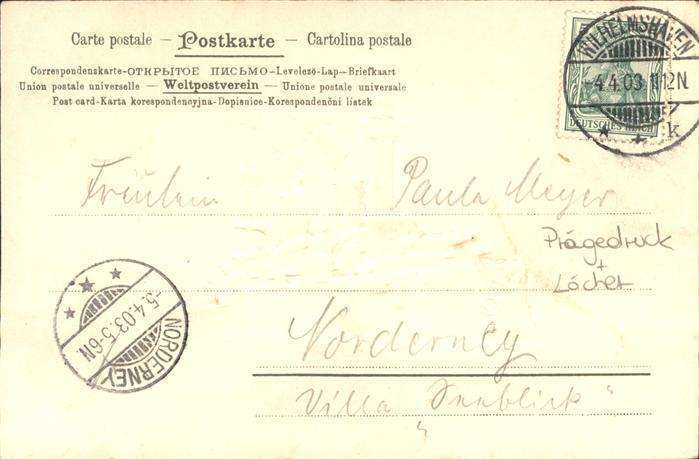 Carte postale — Postkarte — Cartolina postale
Correspondenzkarte-ОТКРЫТОЕ ПИСЬМО-Levelező-Lap-Briefkaart
Union postale universelle — Weltpostverein — Unione postale universale
Post card-Karta korespondencyjna-Dopisnice-Korespondenční listek
WILHELMSHAVEN
-4.4.03.11-12N.
* * k
DEUTSCHES REICH
Fräulein Paula Meyer
Prägedruck
+
Löcher
-5.4.03.5-6N.
NORDERNEY
Norderney
Villa „Seeblick"